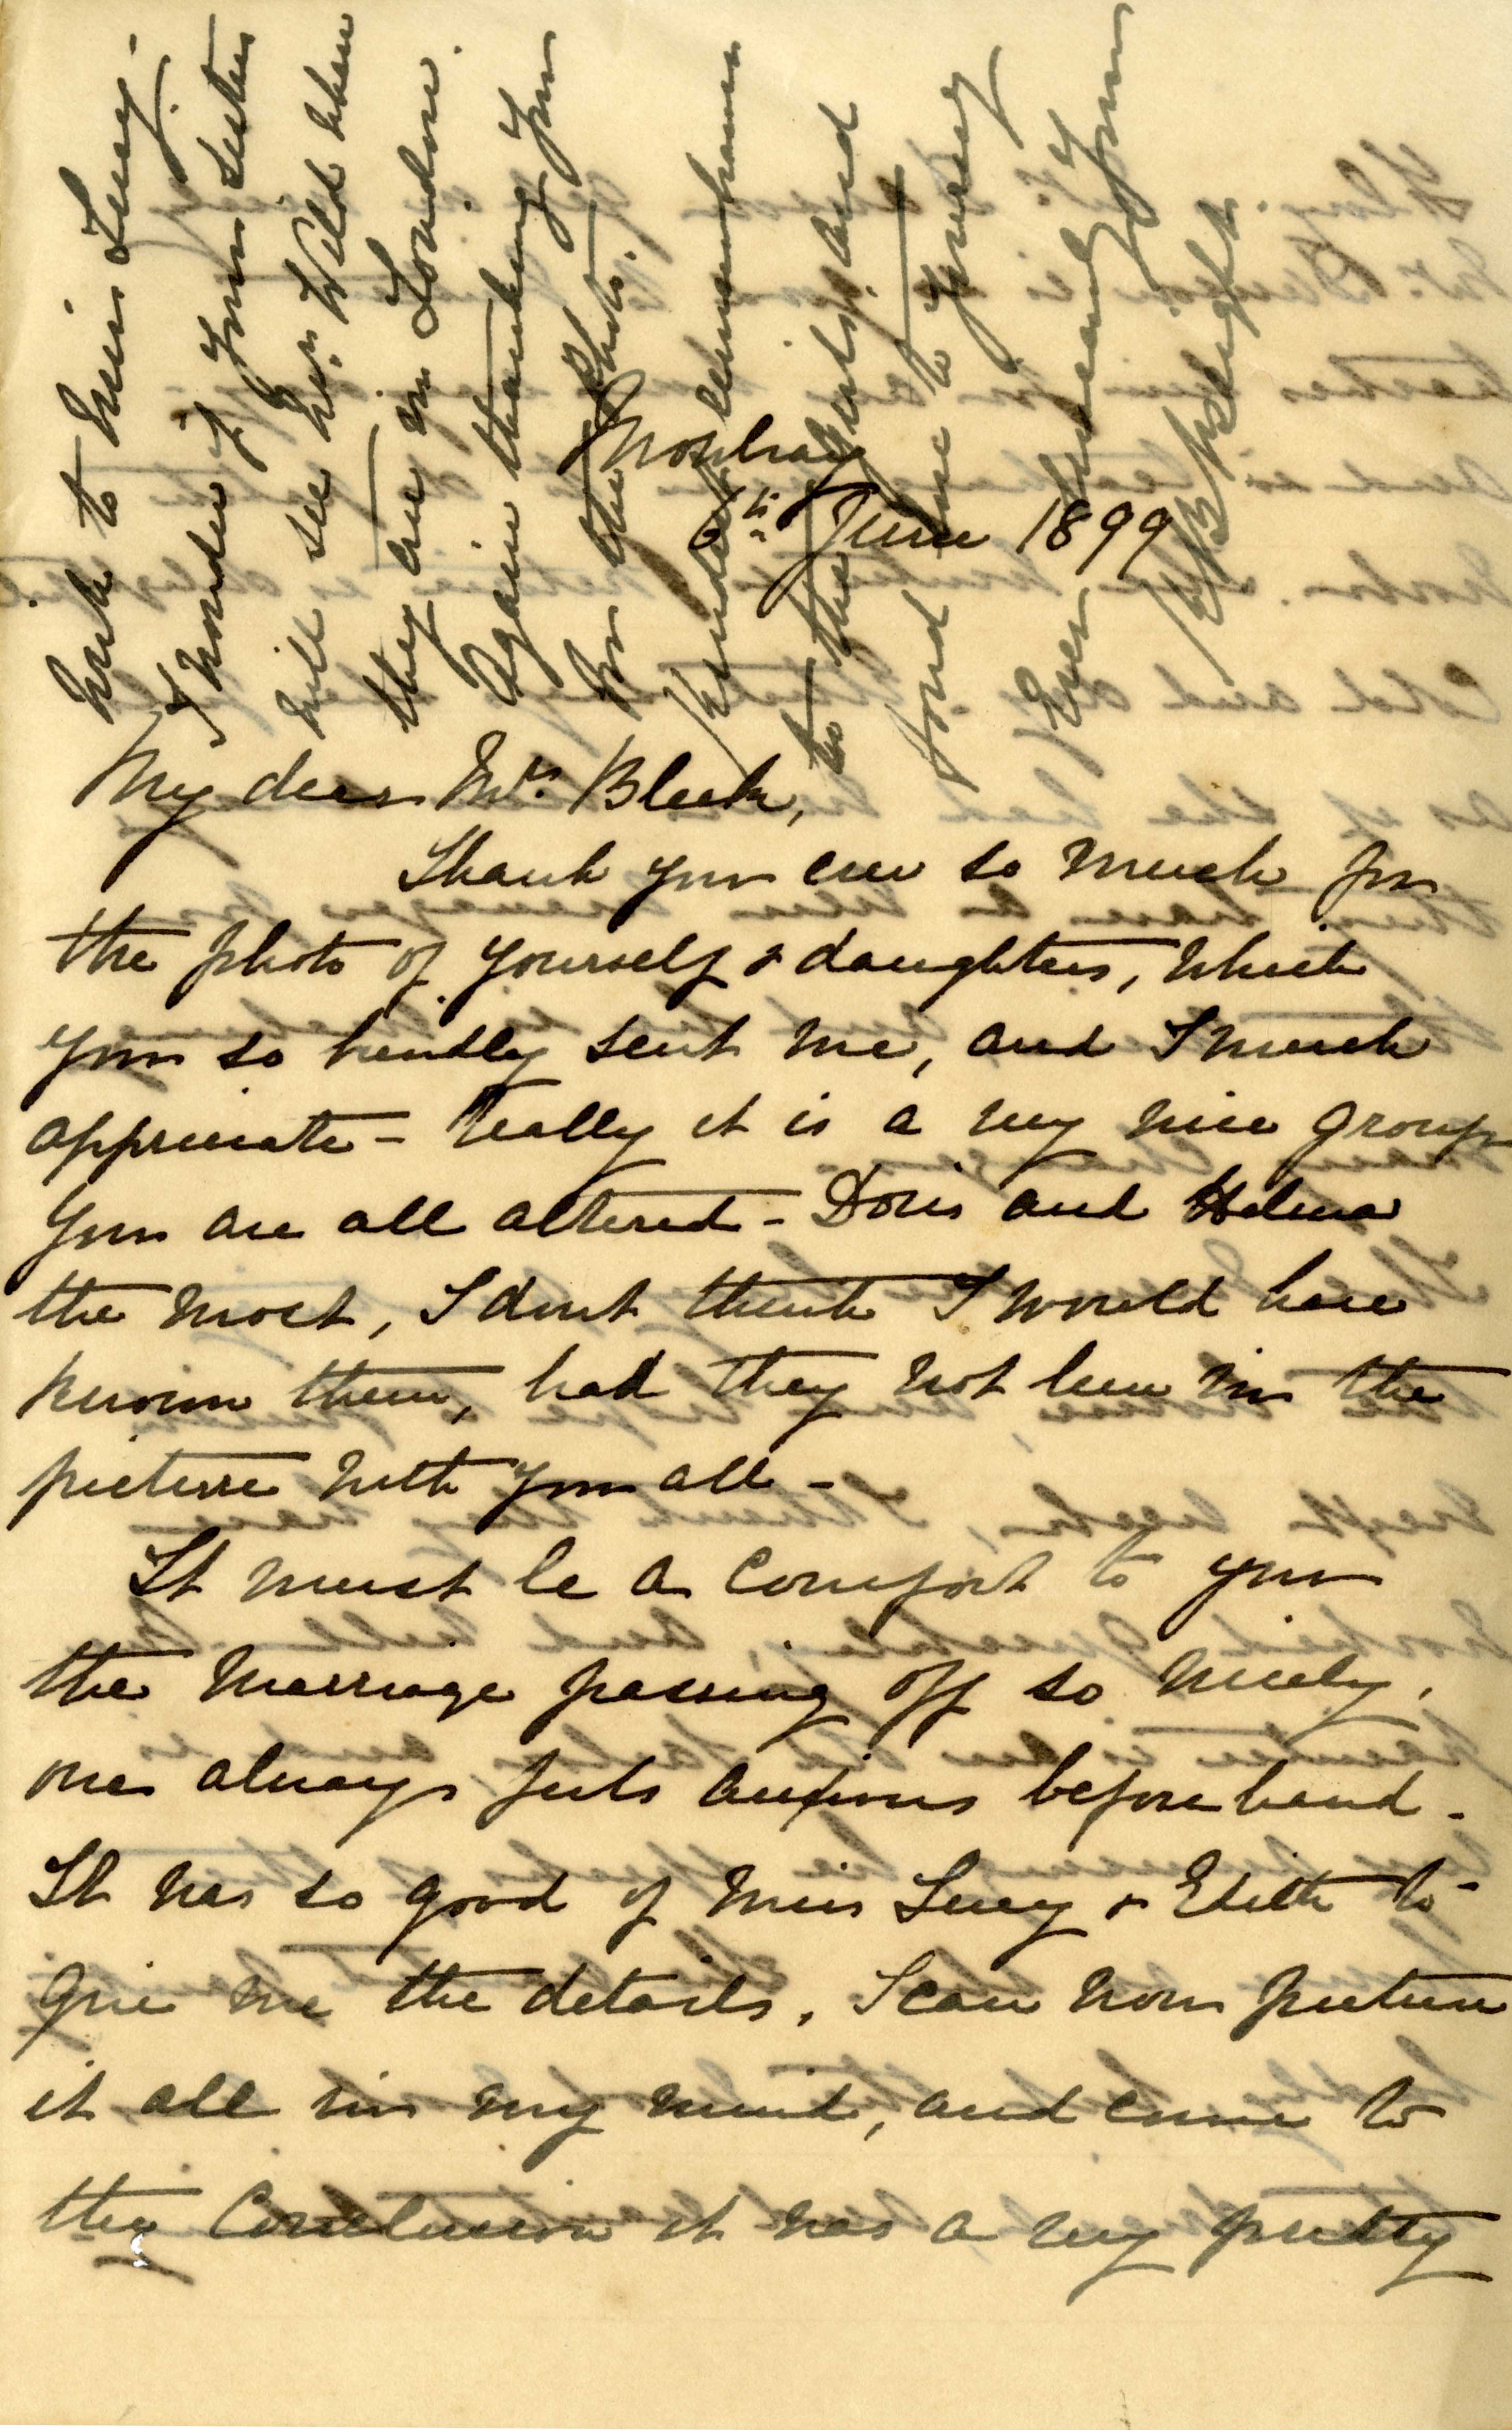 Mowbray
6th June 1899
My dear Mrs. Bleek,
Thank you ever so much for
the photo of yourself & daughters, which
you so kindly sent me, and I much
appreciate - really it is a very nice group
You are all altered - Doris and Helma
the most, I dont think I would have
known them, had they not been in the
picture with you all -
It must be a comfort to you
the marriage passing off so nicely,
one always feels anxious beforehand -
It was so good of Miss Lucy & Edith to
give me the details. I can now picture
it all in my mind, and come to
the conclusion it was a very pretty
write to Miss Lucy -
I wonder if your sisters
will see Mrs. Wild when
they are in London.
Again thanking you
for the photo.
Kindest remembrances
to the girls, and
fond love to yourself
Ever sincerely yours